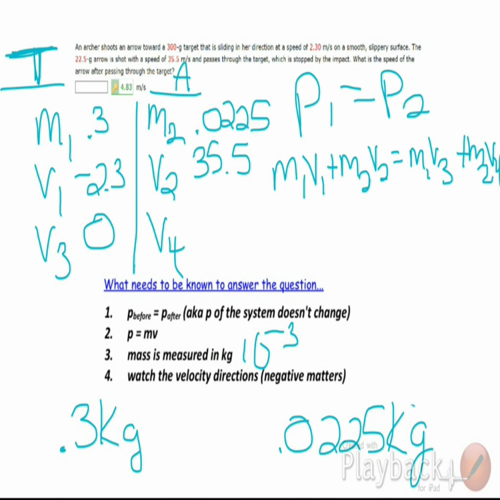 An archer shoots an arrow toward a 300-g target that is sliding in her direction at a speed of 2.30 m/s on a smooth, slippery surface. The
22.5-g arrow is shot with a speed of 35.5 m/s and passes through the target, which is stopped by the impact. What is the speed of the
arrow after passing through the target?
4.83 m/s
T A
m1 .3 m2 .0225 P1 = P2
V1 -2.3 V2 35.5 m1V1+m2V2=m1V3+m2V4
V3 0 V4
What needs to be known to answer the question...
1. pbefore = pafter (aka p of the system doesn't change)
2. p = mv
3. mass is measured in kg 10-3
4. watch the velocity directions (negative matters)
.3Kg .0225Kg
Playback
for iPad